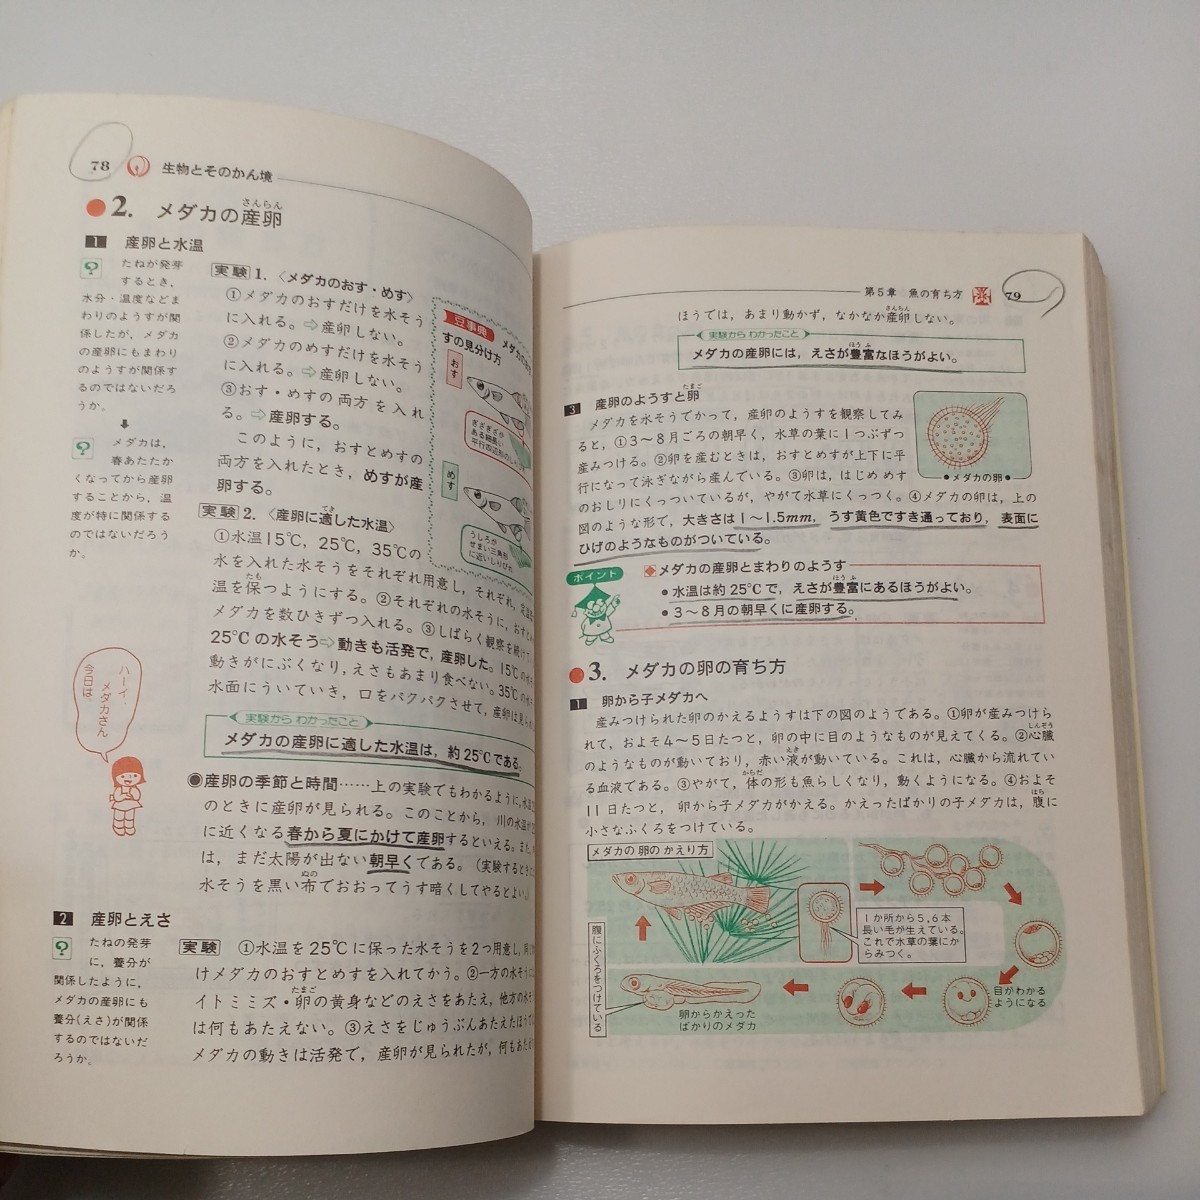 78 生物とそのかん境
2. メダカの産卵
さんらん
1 産卵と水温
? たねが発芽
するとき，
水分・温度などま
わりのようすが関
係したが，メダカ
の産卵にもまわり
のようすが関係す
るのではないだろ
うか。
? メダカは，
春あたたか
くなってから産卵
することから，温
度が特に関係する
のではないだろう
か。
ハーイ，
メダカさん
今日は、
実験 1. 〈メダカのおす・めす〉
①メダカのおすだけを水そう
に入れる。⇨産卵しない。
②メダカのめすだけを水そう
に入れる。⇨産卵しない。
③おす・めすの両方を入れ
る。⇨産卵する。
このように，おすとめすの
両方を入れたとき，めすが産
卵する。
豆事典 メダカの
すの見分け方
おす
ぎざぎざが
ある細長い
平行四辺形のしり
めす
うしろが
せまい三角形
に近いしりびれ
実験 2. 〈産卵に適した水温〉
てき
①水温15℃，25℃，35℃の
水を入れた水そうをそれぞれ用意し，それぞれ，
温を保つようにする。②それぞれの水そうに，おすとめ
たも
メダカを数ひきずつ入れる。③しばらく観察を続け
25℃の水そう⇨動きも活発で，産卵した。15℃の
動きがにぶくなり，えさもあまり食べない。35℃の
水面にういていき，口をパクパクさせて，産卵は見ら
実験から わかったこと
メダカの産卵に適した水温は，約25℃である。
●産卵の季節と時間……上の実験でもわかるように，
のときに産卵が見られる。このことから，川の水温が
に近くなる春から夏にかけて産卵するといえる。また，
は，まだ太陽が出ない朝早くである。（実験するときに
水そうを黒い布でおおってうす暗くしてやるとよい。）
ぬの
2 産卵とえさ
? たねの発芽
に，養分が
関係したように，
メダカの産卵にも
養分(えさ)が関係
するのではないだ
ろうか。
実験 ①水温を25℃に保った水そうを2つ用意し，
けメダカのおすとめすを入れてかう。②一方の水そうに
イトミミズ・卵の黄身などのえさをあたえ，他方の水そ
たまご
は何もあたえない。③えさをじゅうぶんあたえたほう
メダカの動きは活発で，産卵が見られたが，何もあたえ
第5章 魚の育ち方 79
ほうでは，あまり動かず，なかなか産卵しない。
さんらん
実験から わかったこと
メダカの産卵には，えさが豊富なほうがよい。
ほう ふ
3 産卵のようすと卵
たまご
メダカを水そうでかって，産卵のようすを観察してみ
ると，①3〜8月ごろの朝早く，水草の葉に1つぶずつ
産みつける。②卵を産むときは，おすとめすが上下に平
行になって泳ぎながら産んでいる。③卵は，はじめめす
のおしりにくっついているが，やがて水草にくっつく。④メダカの卵は，上の
図のような形で，大きさは1〜1.5mm，うす黄色ですき通っており，表面に
ひげのようなものがついている。
●メダカの卵●
ポイント
◆メダカの産卵とまわりのようす
●水温は約25℃で，えさが豊富にあるほうがよい。
ほう ふ
●3〜8月の朝早くに産卵する。
3. メダカの卵の育ち方
1 卵から子メダカへ
産みつけられた卵のかえるようすは下の図のようである。①卵が産みつけら
れて，およそ4〜5日たつと，卵の中に目のようなものが見えてくる。②心臓
しんぞう
のようなものが動いており，赤い液が動いている。これは，心臓から流れてい
えき
る血液である。③やがて，体の形も魚らしくなり，動くようになる。④およそ
からだ
11日たつと，卵から子メダカがかえる。かえったばかりの子メダカは，腹に
はら
小さなふくろをつけている。
メダカの卵のかえり方
1か所から5,6本
長い毛が生えている。
これで水草の葉にか
らみつく。
目がわかる
ようになる
卵からかえった
ばかりのメダカ
腹にふくろをつけている